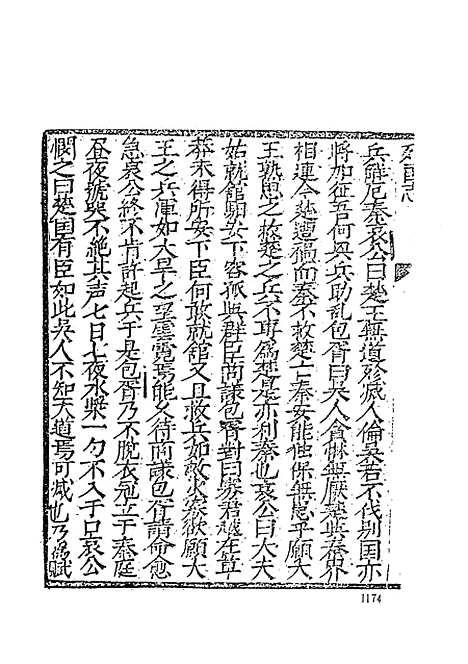 兵解厄秦哀公曰楚王無道殄滅人倫吳若不伐别国亦
將加征吾何與兵助乱包胥曰吳人貪惏無厭楚與秦界
相連今楚遭禍而秦不救楚亡秦安能独保無患乎願大
王熟思之救楚之兵不専為楚是亦利秦也哀公曰大夫
姑就館駅安下容孤與群臣商議包胥對曰寡君越在草
莽未得所安下臣何敢就舘又且救兵如救火寡欲願大
王之兵渾如大旱之望雲霓焉能久待商議包胥請命愈
急哀公終不肯許起兵于是包胥乃不脫衣冠立于秦庭
昼夜號哭不絶其声七日七夜水漿一勺不入于口哀公
憫之曰楚国有臣如此吳人不知天道焉可滅也乃為賦
1174